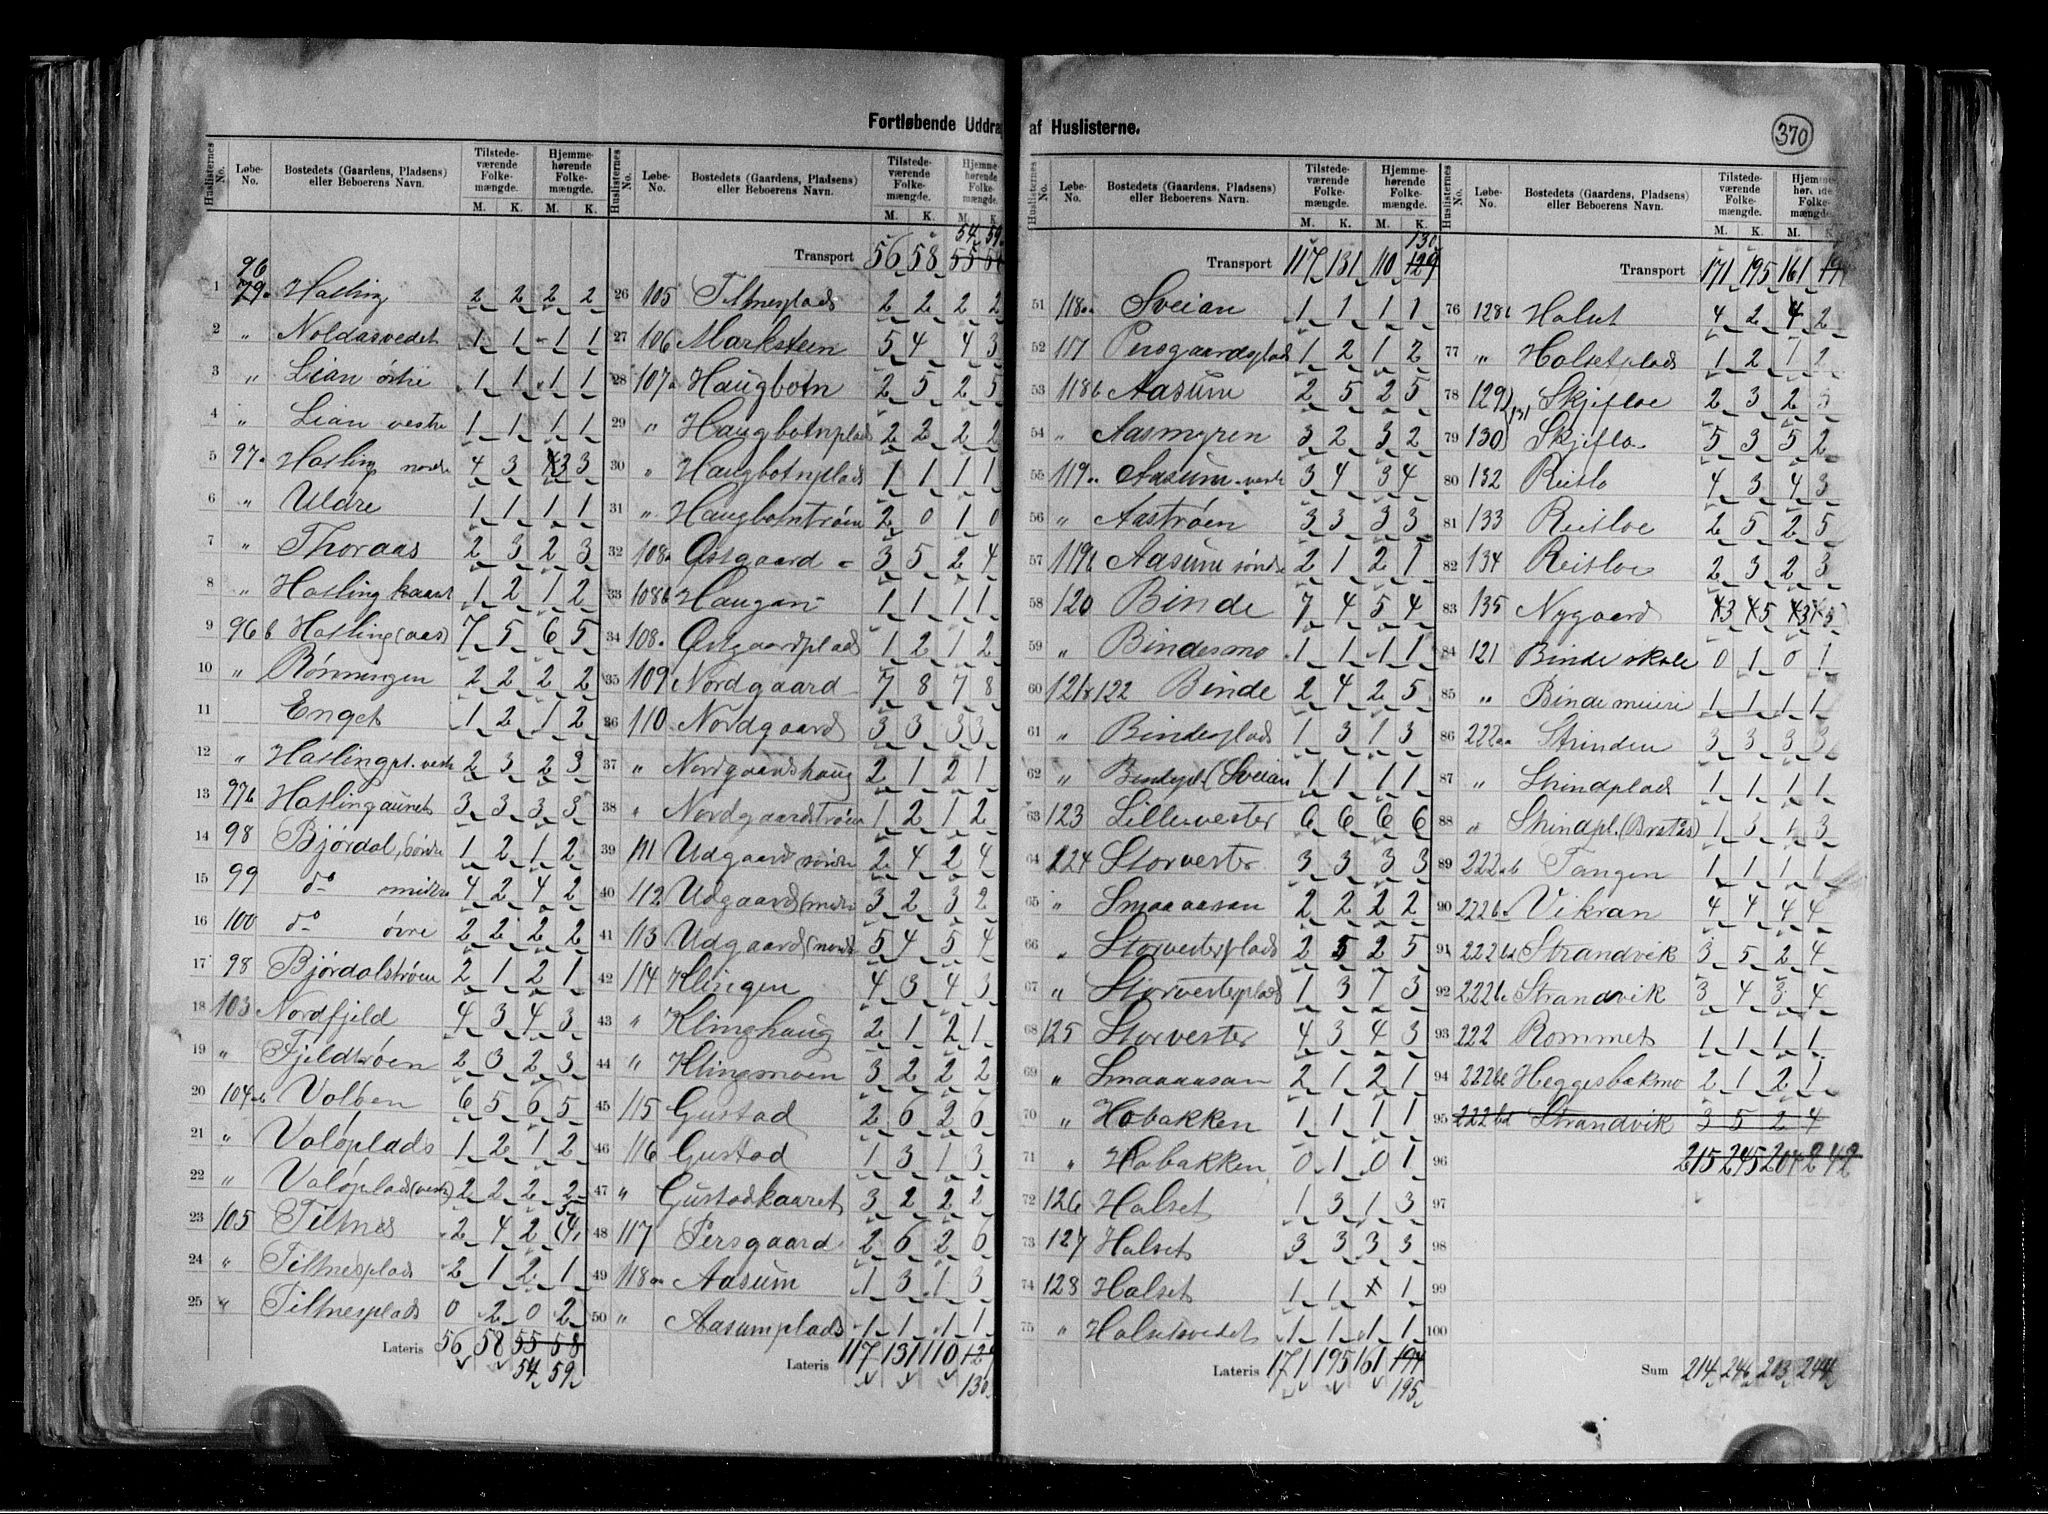 Fortløbende Uddra af Huslisterne.
370
Huslisternes No. Løbe-No. Bostedets (Gaardens, Pladsens) eller Beboerens Navn. Tilstedeværende Folkemængde. M. K. Hjemmehørende Folkemængde. M. K.
1 96 79a Hasling 2 2 2 2
2 " Noldasvedet 1 1 1 1
3 " Lian østre 1 1 1 1
4 " Lian vestre 1 1 1 1
5 97a Hasling nordre 4 3 3 3
6 " Uldre 1 1 1 1
7 " Thoraas 2 3 2 3
8 " Hasling kaaret 1 2 1 2
9 96b Hasling (aas) 7 5 6 5
10 " Rønningen 2 2 2 2
11 Enget 1 2 1 2
12 " Haslingpl. vestre 2 3 2 3
13 97b Haslingaunet 3 3 3 3
14 98 Bjørdal, søndre 1 2 1 2
15 99 do midtre 4 2 4 2
16 100 do øvre 2 2 2 2
17 98 Bjørdalstrøen 2 1 2 1
18 103 Nordfjeld 4 3 4 3
19 " Fjeldtrøen 2 3 2 3
20 104 Valøen 6 5 6 5
21 " Valøplads 1 2 1 2
22 " Valøplads (vestre) 2 2 2 2
23 105 Tiltnes 2 4 2 4 5
24 " Tiltnesplads 2 1 2 1
25 " Tiltnesplads 0 2 0 2
Lateris 56 58 55 58
54 59
Huslisternes No. Løbe-No. Bostedets (Gaardens, Pladsens) eller Beboerens Navn. Tilstedeværende Folkemængde. M. K. Hjemmehørende Folkemængde. M. K.
54 59
Transport 56 58 55 58
26 105 Tiltnesplads 2 2 2 2
27 106 Marksteen 5 4 4 3
28 107a Haugbotn 2 5 2 5
29 " Haugbotnplads 2 2 2 2
30 " Haugbotnplads 1 1 1 1
31 " Haugbotntrøen 2 0 1 0
32 108a Østgaard 3 5 2 4
33 108b Haugan 1 1 1 1
34 108a Østgaardplads 1 2 1 2
35 109 Nordgaard 7 8 7 8
36 110 Nordgaard 3 3 3 3
37 " Nordgaardshaug 2 1 2 1
38 " Nordgaardstrøen 1 2 1 2
39 111 Udgaard søndre 2 4 2 4
40 112 Udgaard (midtre 3 2 3 2
41 113 Udgaard (nordre 5 4 5 4
42 114 Klingen 4 3 4 3
43 " Klinghaug 2 1 2 1
44 " Klingsmoen 3 2 2 2
45 115 Gustad 2 6 2 6
46 116 Gustad 1 3 1 3
47 " Gustadkaaret 3 2 2 2
48 117 Persgaard 2 6 2 6
49 118a Aasum 1 3 1 3
50 " Aasumplads 1 1 1 1
Lateris 117 131 110 129
130
Huslisternes No. Løbe-No. Bostedets (Gaardens, Pladsens) eller Beboerens Navn. Tilstedeværende Folkemængde. M. K. Hjemmehørende Folkemængde. M. K.
130
Transport 117 131 110 129
51 118a Sveian 1 1 1 1
52 117 Persgaardsplads 1 2 1 2
53 118b Aasum 2 5 2 5
54 " Aasmyren 3 2 3 2
55 119a Aasum vestre 3 4 3 4
56 " Aastrøen 3 3 3 3
57 119b Aasum søndre 2 1 2 1
58 120 Binde 7 4 5 4
59 " Bindesmo 1 1 1 1
60 121 & 122 Binde 2 4 2 5
61 " Bindesplads 1 3 1 3
62 " Bindepl. (Sveian 1 1 1 1
63 123 Lillevester 6 6 6 6
64 124 Storvester 3 3 3 3
65 " Smaaaasan 2 2 2 2
66 " Storvesterplads 2 5 2 5
67 " Storvesterplads 1 3 1 3
68 125 Storvester 4 3 4 3
69 " Smaaaasan 2 1 2 1
70 " Hobakken 1 1 1 1
71 " Hobakken 0 1 0 1
72 126 Halset 1 3 1 3
73 127 Halset 3 3 3 3
74 128 Halset 1 1 x 1
75 " Halsetsvedet 1 1 1 1
Lateris 171 195 161 194
195
Huslisternes No. Løbe-No. Bostedets (Gaardens, Pladsens) eller Beboerens Navn. Tilstedeværende Folkemængde. M. K. Hjemmehørende Folkemængde. M. K.
Transport 171 195 161
76 128b Halset 4 2 4 2
77 " Halsetplads 1 2 1 2
78 129) 131 Skjefloe 2 3 2 3
79 130) Skjeflo 5 3 5 2
80 132 Reitlo 4 3 4 3
81 133 Reitloe 2 5 2 5
82 134 Reitloe 2 3 2 3
83 135 Nygaard 3 5 3 5
84 121 Binde skole 0 1 0 1
85 " Binde meieri 1 1 1 1
86 222aa Strinden 3 3 3 3
87 " Strindplads 1 1 1 1
88 " Strindpl. (Bratås) 1 3 1 3
89 222ab Tangen 1 1 1 1
90 222ba Vikran 4 4 4 4
91 222bd Strandvik 3 5 2 4
92 222bc Strandvik 3 4 3 4
93 222 Rommet 1 1 1 1
94 222be Heggesbækmo 2 1 2 1
95 222bd Strandvik 3 5 2 4
96 215 245 204 242
97
98
99
100
Sum 214 246 203 244